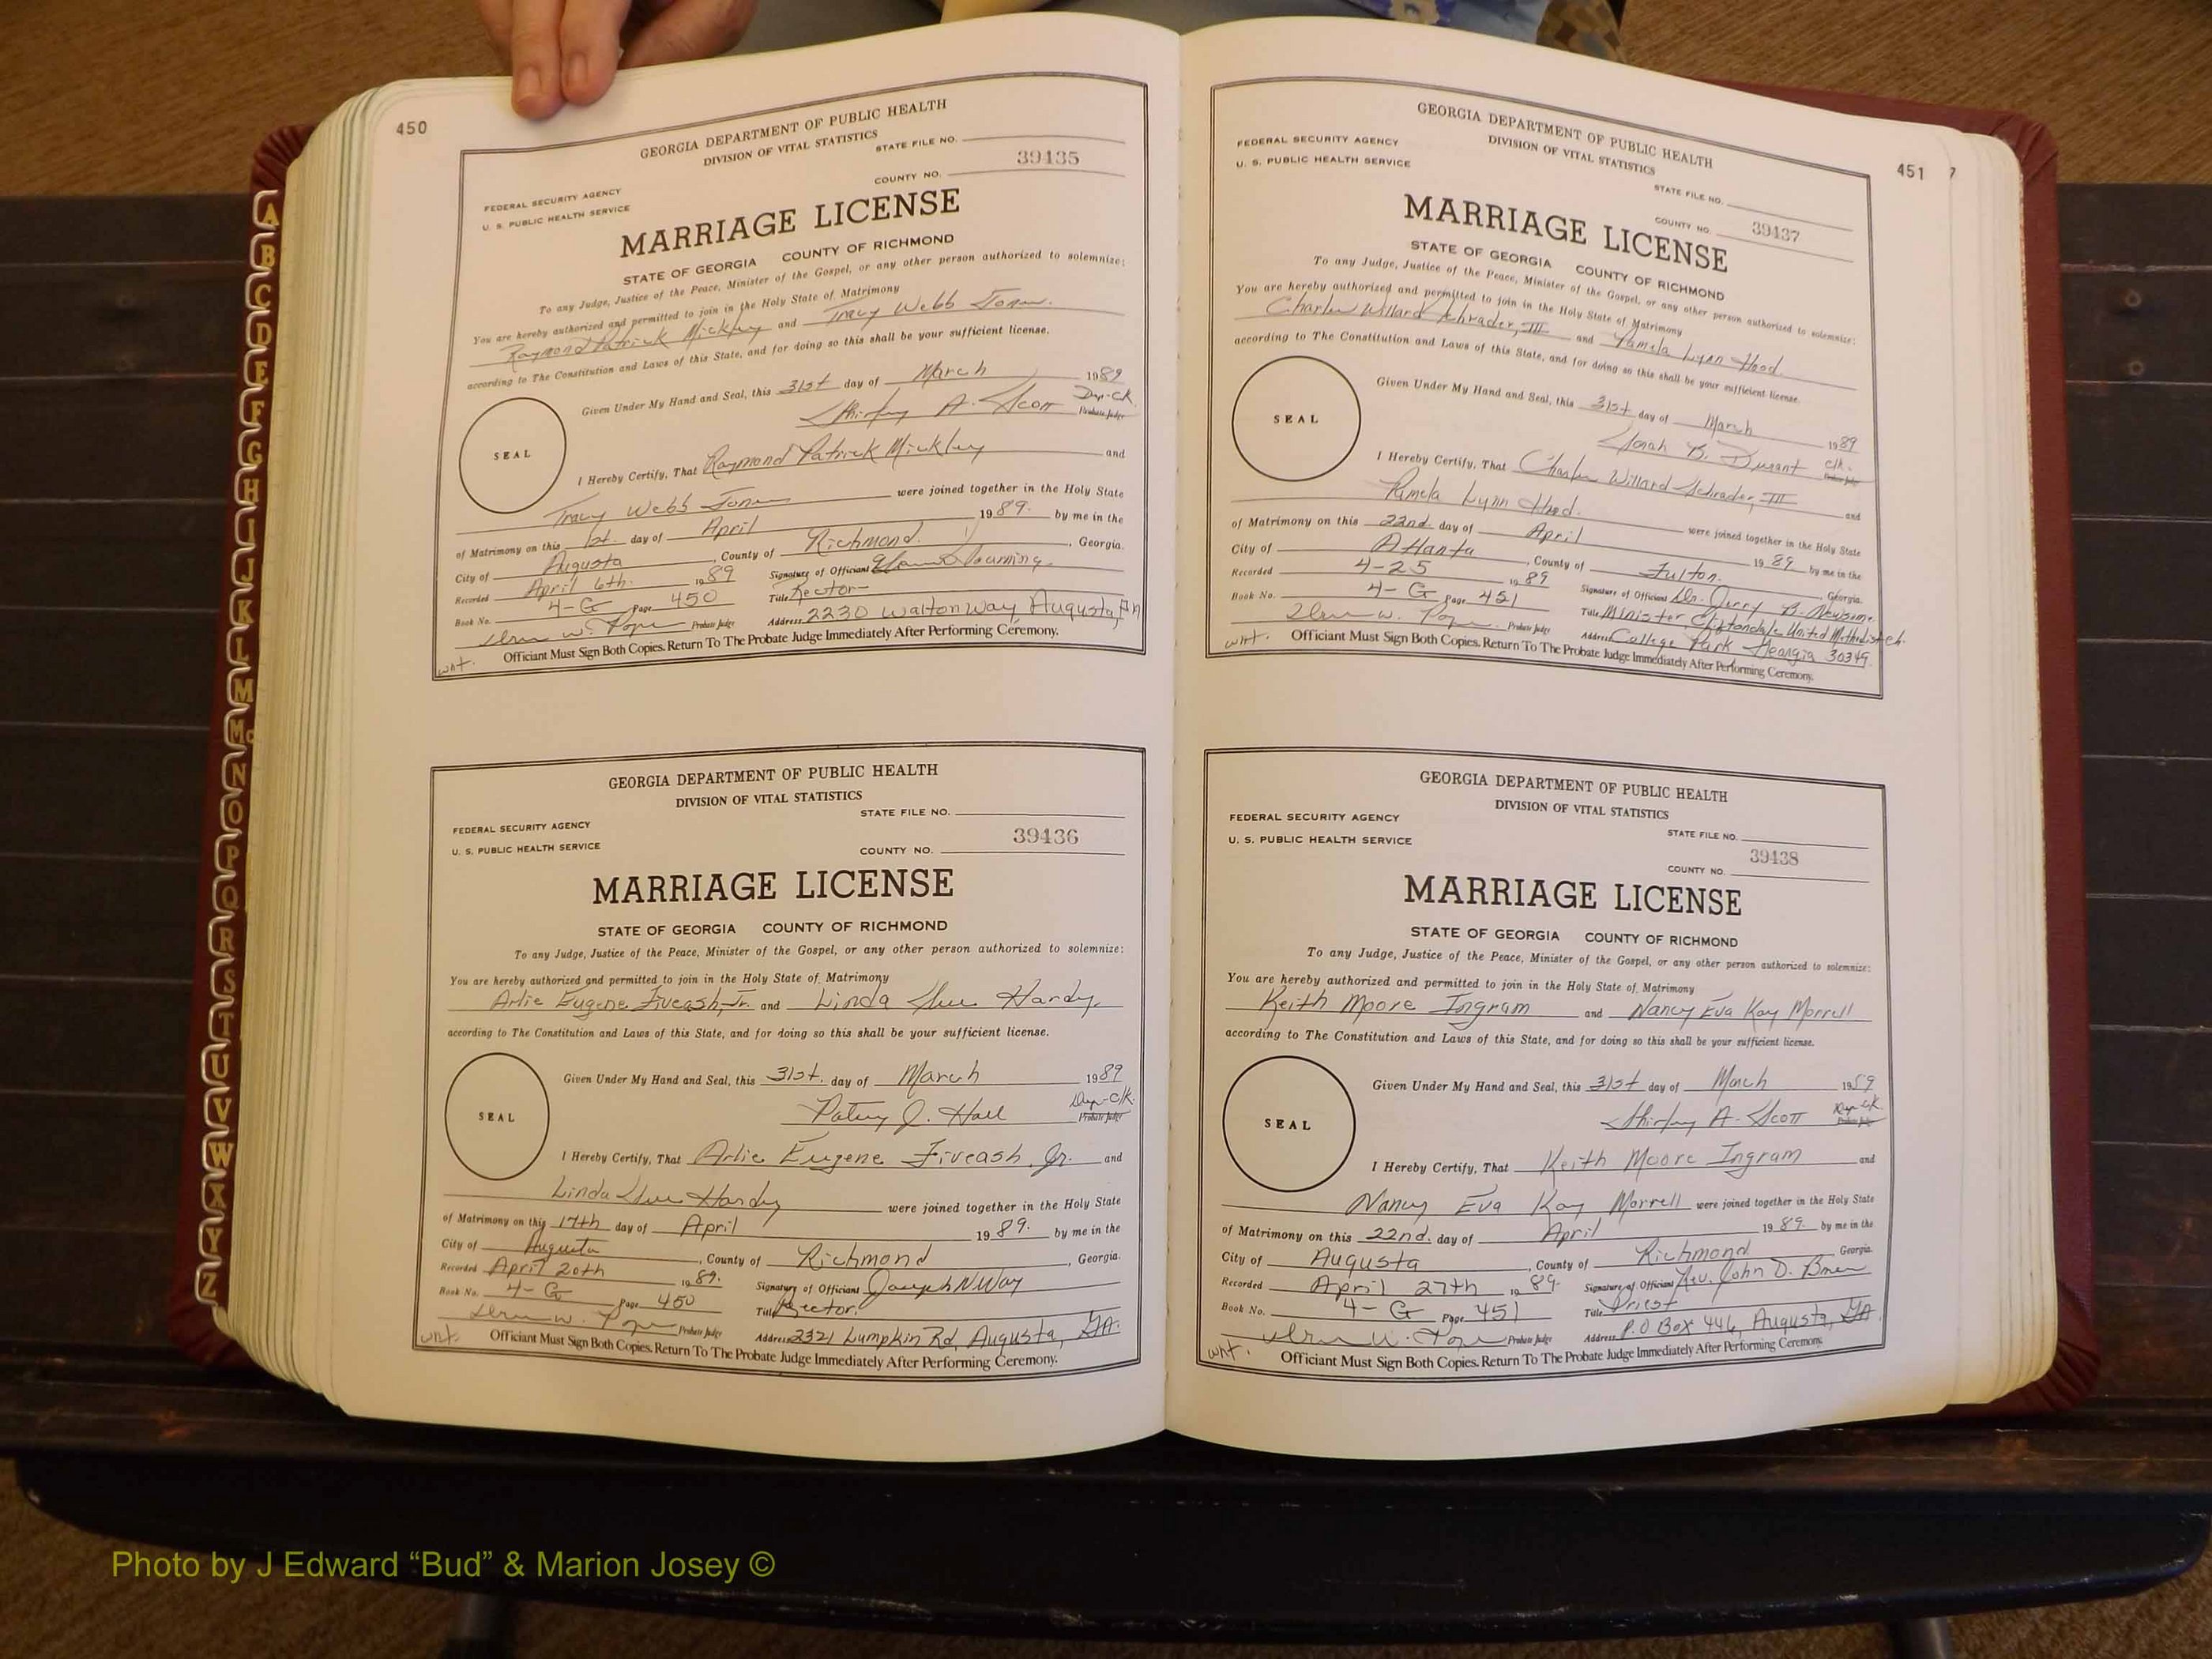 450
GEORGIA DEPARTMENT OF PUBLIC HEALTH
DIVISION OF VITAL STATISTICS
STATE FILE NO.
39435
COUNTY NO.
FEDERAL SECURITY AGENCY
U. S. PUBLIC HEALTH SERVICE
MARRIAGE LICENSE
STATE OF GEORGIA COUNTY OF RICHMOND
To any Judge, Justice of the Peace, Minister of the Gospel, or any other person authorized to solemnize:
You are hereby authorized and permitted to join in the Holy State of Matrimony
Raymond Patrick Mickley and Tracy Webb Jones.
according to The Constitution and Laws of this State, and for doing so this shall be your sufficient license.
Given Under My Hand and Seal, this 31st day of March 1989
Shirley A. Scott Dep-Clk.
Probate Judge
SEAL
I Hereby Certify, That Raymond Patrick Mickley and
Tracy Webb Jones were joined together in the Holy State
of Matrimony on this 1st. day of April 1989. by me in the
City of Augusta, County of Richmond, Georgia.
Recorded April 6th. 1989 Signature of Officiant
Book No. 4-G Page 450 Title Rector
W. Pope Probate Judge Address 2230 Walton Way, Augusta,
wnt. Officiant Must Sign Both Copies. Return To The Probate Judge Immediately After Performing Ceremony.
GEORGIA DEPARTMENT OF PUBLIC HEALTH
DIVISION OF VITAL STATISTICS
STATE FILE NO.
39436
COUNTY NO.
FEDERAL SECURITY AGENCY
U. S. PUBLIC HEALTH SERVICE
MARRIAGE LICENSE
STATE OF GEORGIA COUNTY OF RICHMOND
To any Judge, Justice of the Peace, Minister of the Gospel, or any other person authorized to solemnize:
You are hereby authorized and permitted to join in the Holy State of Matrimony
Arlie Eugene Fiveash, Jr. and Linda Sue Hardy
according to The Constitution and Laws of this State, and for doing so this shall be your sufficient license.
Given Under My Hand and Seal, this 31st. day of March 1989
J. Hall Dep-Clk.
Probate Judge
SEAL
I Hereby Certify, That Arlie Eugene Fiveash, Jr. and
Linda Sue Hardy were joined together in the Holy State
of Matrimony on this 17th day of April 1989. by me in the
City of Augusta, County of Richmond, Georgia.
Recorded April 20th 1989. Signature of Officiant Joseph N Way
Book No. 4-G Page 450 Title Rector.
W. Pope Probate Judge Address 2321 Lumpkin Rd, Augusta, GA.
wnt. Officiant Must Sign Both Copies. Return To The Probate Judge Immediately After Performing Ceremony.
451 7
GEORGIA DEPARTMENT OF PUBLIC HEALTH
DIVISION OF VITAL STATISTICS
FEDERAL SECURITY AGENCY
U. S. PUBLIC HEALTH SERVICE
STATE FILE NO.
COUNTY NO. 39437
MARRIAGE LICENSE
STATE OF GEORGIA COUNTY OF RICHMOND
To any Judge, Justice of the Peace, Minister of the Gospel, or any other person authorized to solemnize:
You are hereby authorized and permitted to join in the Holy State of Matrimony
Charles Willard Schrader, III and Pamela Lynn Hood.
according to The Constitution and Laws of this State, and for doing so this shall be your sufficient license.
Given Under My Hand and Seal, this 31st day of March 1989
B. Durant Clk.
Probate Judge
SEAL
I Hereby Certify, That Charles Willard Schrader, III and
Pamela Lynn Hood. were joined together in the Holy State
of Matrimony on this 22nd. day of April 1989. by me in the
City of Atlanta, County of Fulton. Georgia.
Recorded 4-25 1989 Signature of Officiant Dr. Jerry B. Newsome
Book No. 4-G Page 451 Title Minister Cliftondale United Methodist Ch.
W. Pope Probate Judge Address College Park Georgia 30349.
wnt. Officiant Must Sign Both Copies. Return To The Probate Judge Immediately After Performing Ceremony.
GEORGIA DEPARTMENT OF PUBLIC HEALTH
DIVISION OF VITAL STATISTICS
FEDERAL SECURITY AGENCY
U. S. PUBLIC HEALTH SERVICE
STATE FILE NO.
39438
COUNTY NO.
MARRIAGE LICENSE
STATE OF GEORGIA COUNTY OF RICHMOND
To any Judge, Justice of the Peace, Minister of the Gospel, or any other person authorized to solemnize:
You are hereby authorized and permitted to join in the Holy State of Matrimony
Keith Moore Ingram and Nancy Eva Kay Morrell
according to The Constitution and Laws of this State, and for doing so this shall be your sufficient license.
Given Under My Hand and Seal, this 31st day of March 1989
Shirley A. Scott Dep-Clk.
Probate Judge
SEAL
I Hereby Certify, That Keith Moore Ingram and
Nancy Eva Kay Morrell were joined together in the Holy State
of Matrimony on this 22nd. day of April 1989. by me in the
City of Augusta, County of Richmond Georgia.
Recorded April 27th 1989. Signature of Officiant Rev. John D.
Book No. 4-G Page 451 Title Priest
W. Pope Probate Judge Address P.O Box 446, Augusta, GA
wnt. Officiant Must Sign Both Copies. Return To The Probate Judge Immediately After Performing Ceremony.
A
B
C
D
E
F
G
H
I
J
K
L
M
Mc
N
O
P
Q
R
S
T
U
V
W
X
Y
Z
Photo by J Edward “Bud” & Marion Josey ©